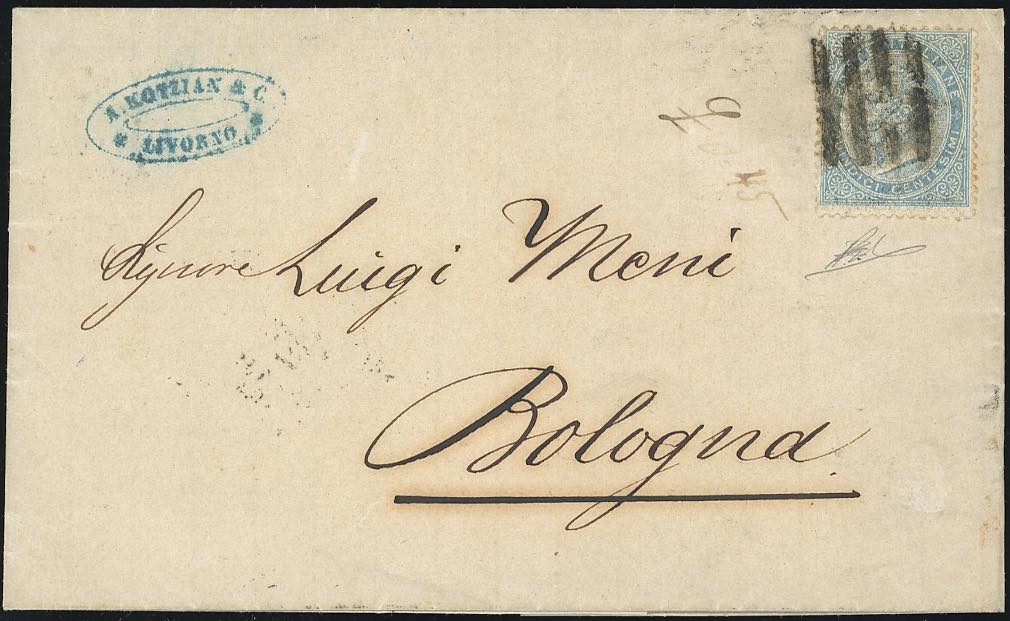 A. KOTZIAN & C.
LIVORNO
CENTESIMI
Signore Luigi Meni
Bologna